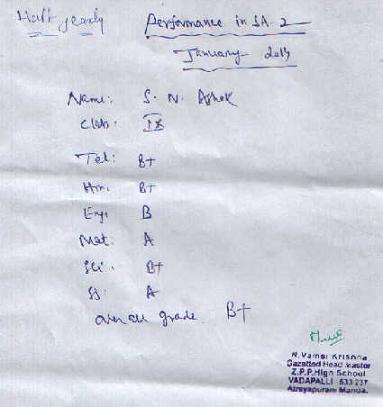 Half yearly
Performance in SA 2
January 2013
Name: S. N. Ashok
Class: IX
Tel: B+
Hin: B+
Eng: B
Mat: A
Sci: B+
SS: A
over all grade B+
N. Vamsi Krishna
Gazetted Head Master
Z.P.P.High School
VADAPALLI 533 237
Atreyapuram Manda.